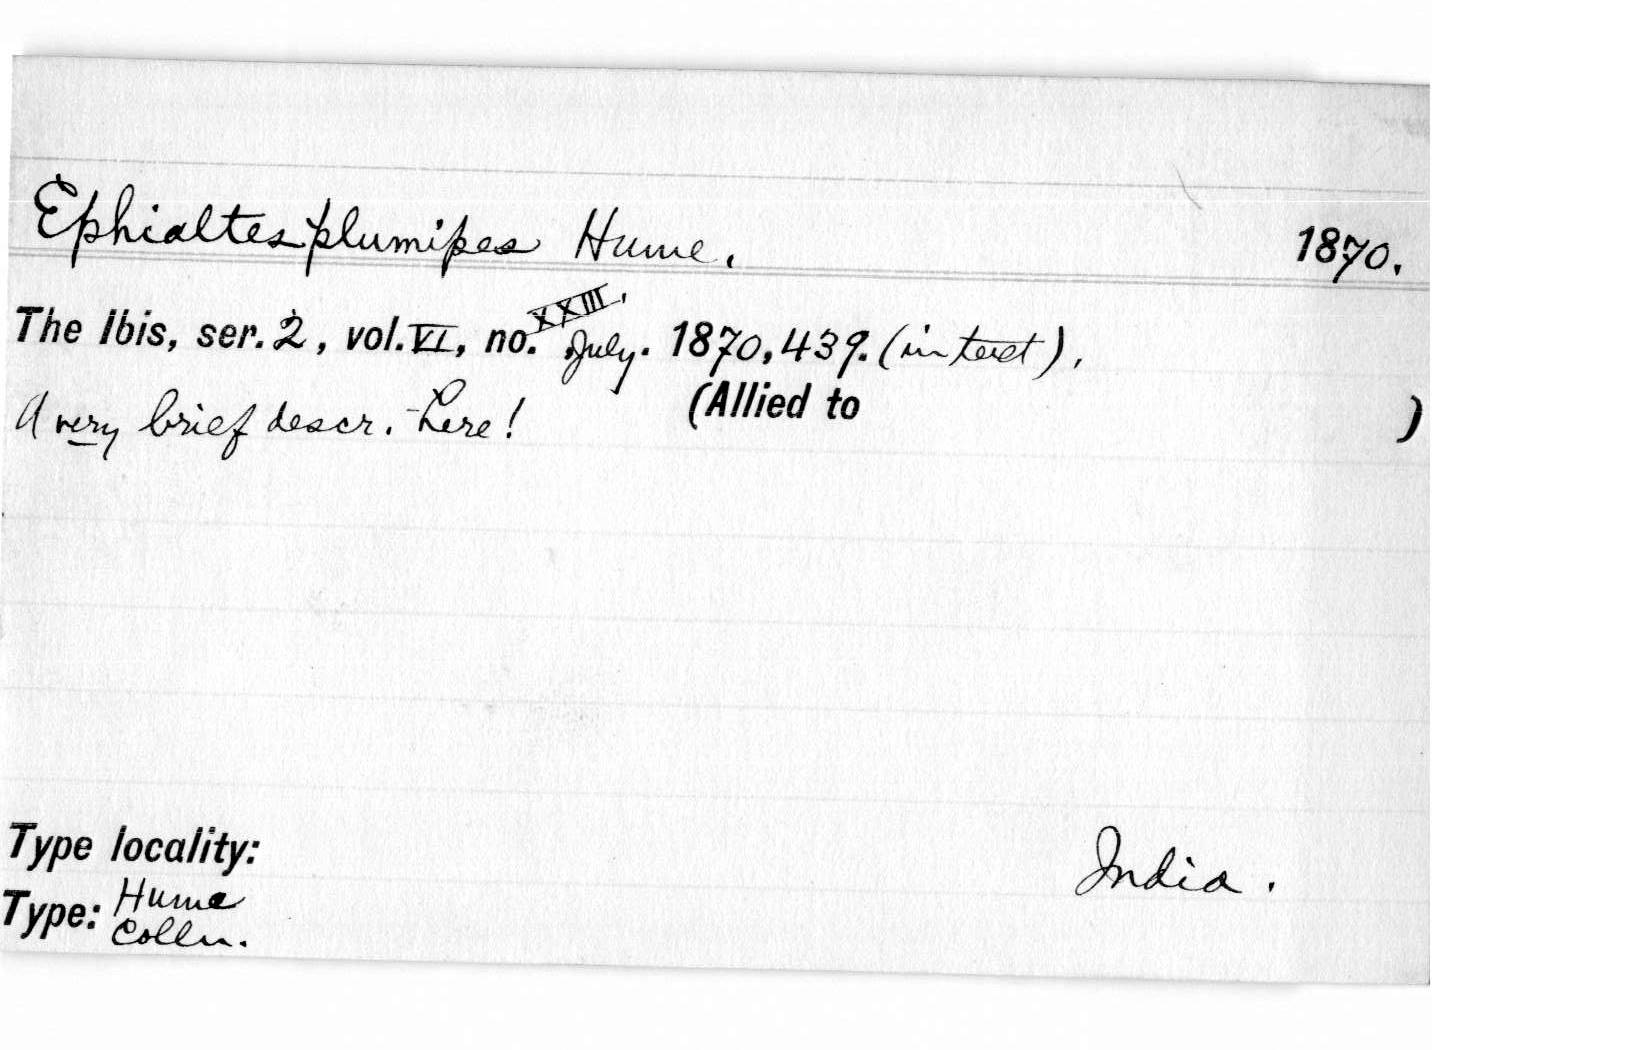 Ephialtes plumipes Hume. 1870.
The Ibis, ser. 2, vol. VI, no. XXIII. July. 1870, 439. (in text).
A very brief descr. here! (Allied to )
Type locality: India.
Type: Hume
Colln.